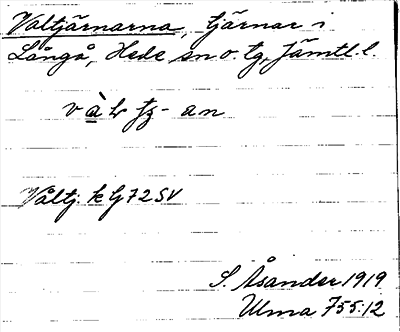 Valtjärnarna, tjärnar i
Långå, Hede sn o. tg, Jämtl. l.
Våltj. k G72SV
S. Åsander 1919
Ulma 755:12